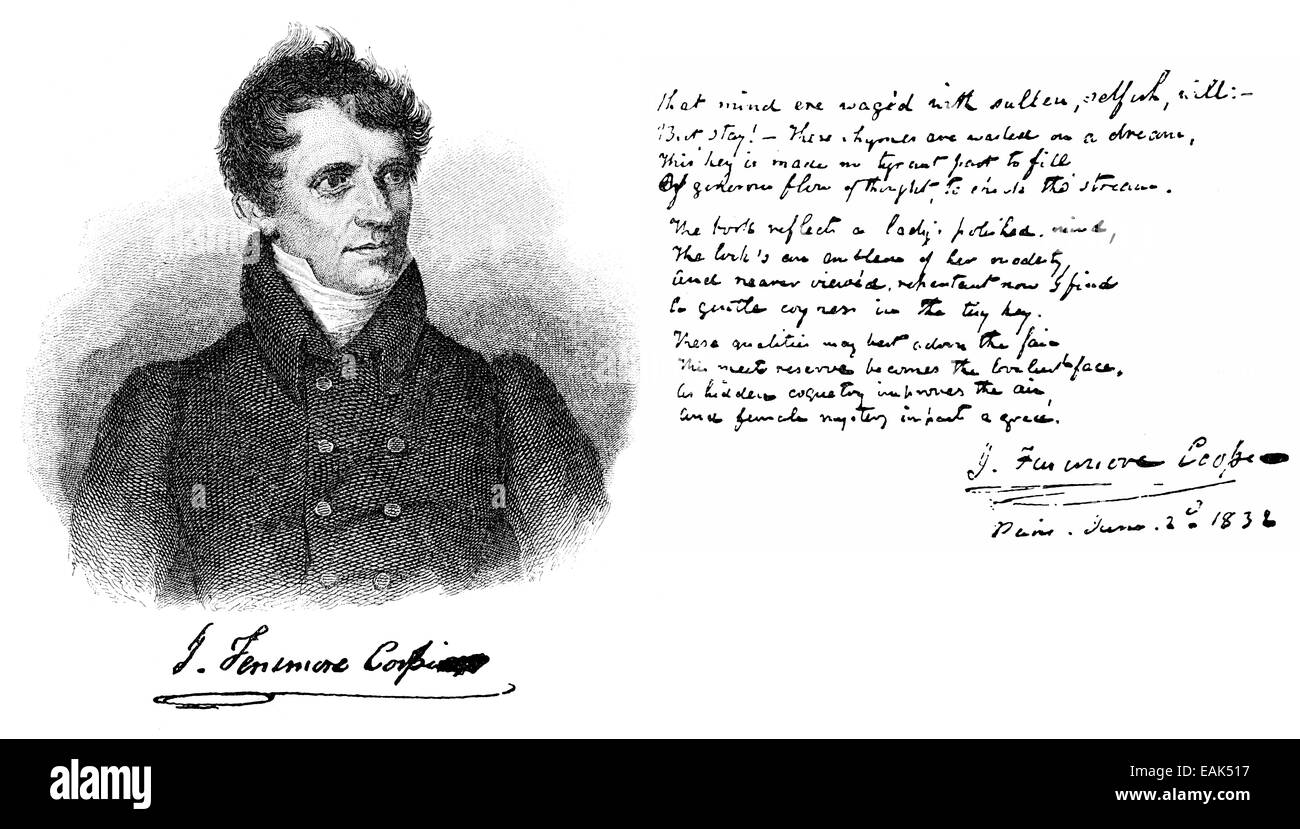 that mind ere wag'd with sullen, selfish, will:—
But stay! — These rhymes are wasted on a dream,
This key is made no tyrant part to fill
Of generous flow of thought, to check the stream.
The book reflects a lady's polished mind,
The lock's an emblem of her modesty,
And nearer view'd, repentant now I find
a gentle coyness in the tiny key.
These qualities may best adorn the fair
This meets reserve becomes the loveliest face,
As hidden coquetry improves the air,
And female mystery impart a grace.
J. Fenimore Cooper
Paris. June. 2d 1832
J. Fenimore Cooper
alamy
a
alamy stock photo
EAK517
www.alamy.com